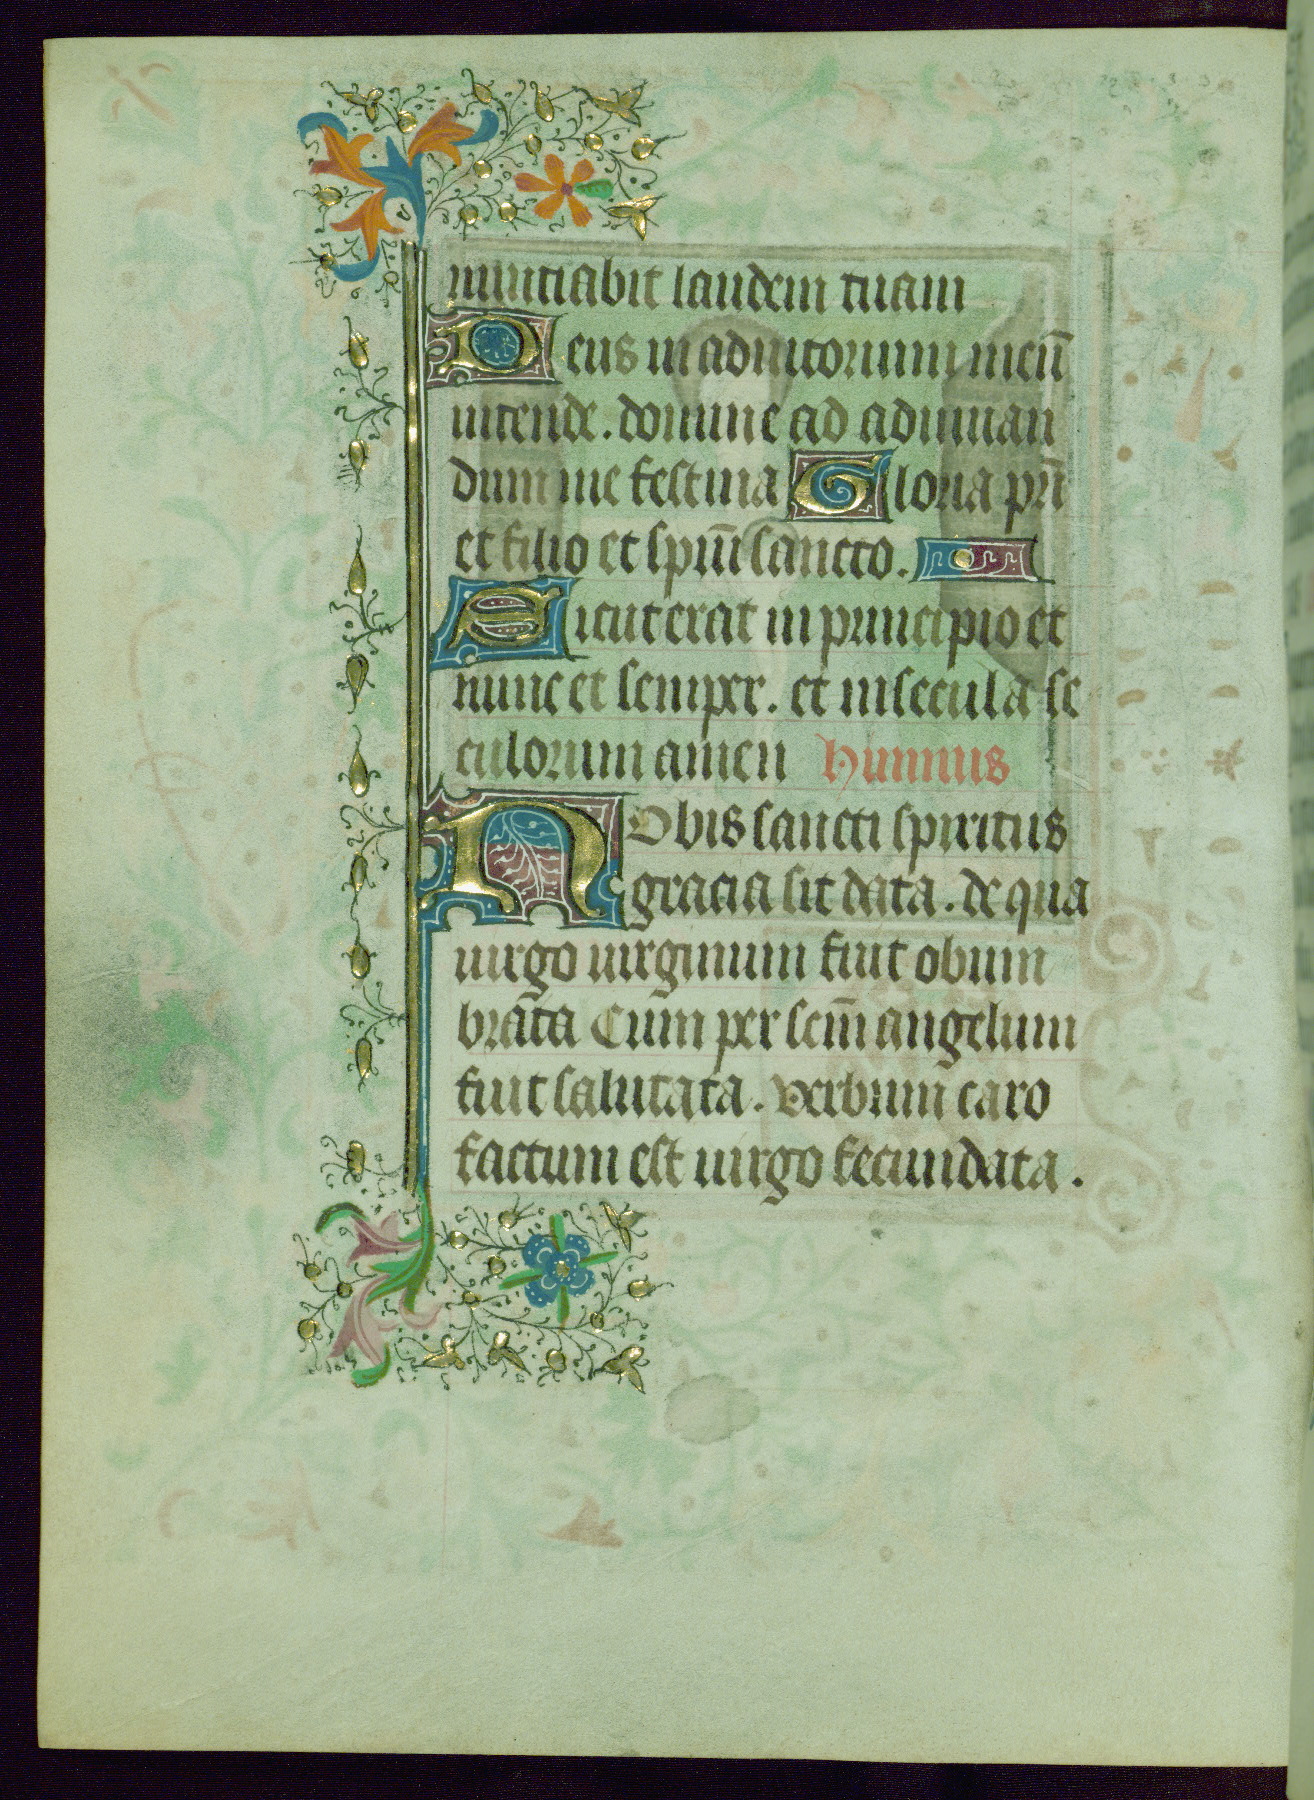 nunciabit laudem tuam
Deus in adiutorium meū
intende. domine ad adiuuan
dum me festina Gloria pr̄i
et filio et spiri̅ sancto.
Sicut erat in principio et
nunc et semper. et in secula se
culorum amen Humnus
Nobis sancti spiritus
gracia sit data. de qua
uirgo uirginum fuit obum
brāta Cum per scm̄ angelum
fuit salutata. verbum caro
factum est uirgo fecundata.